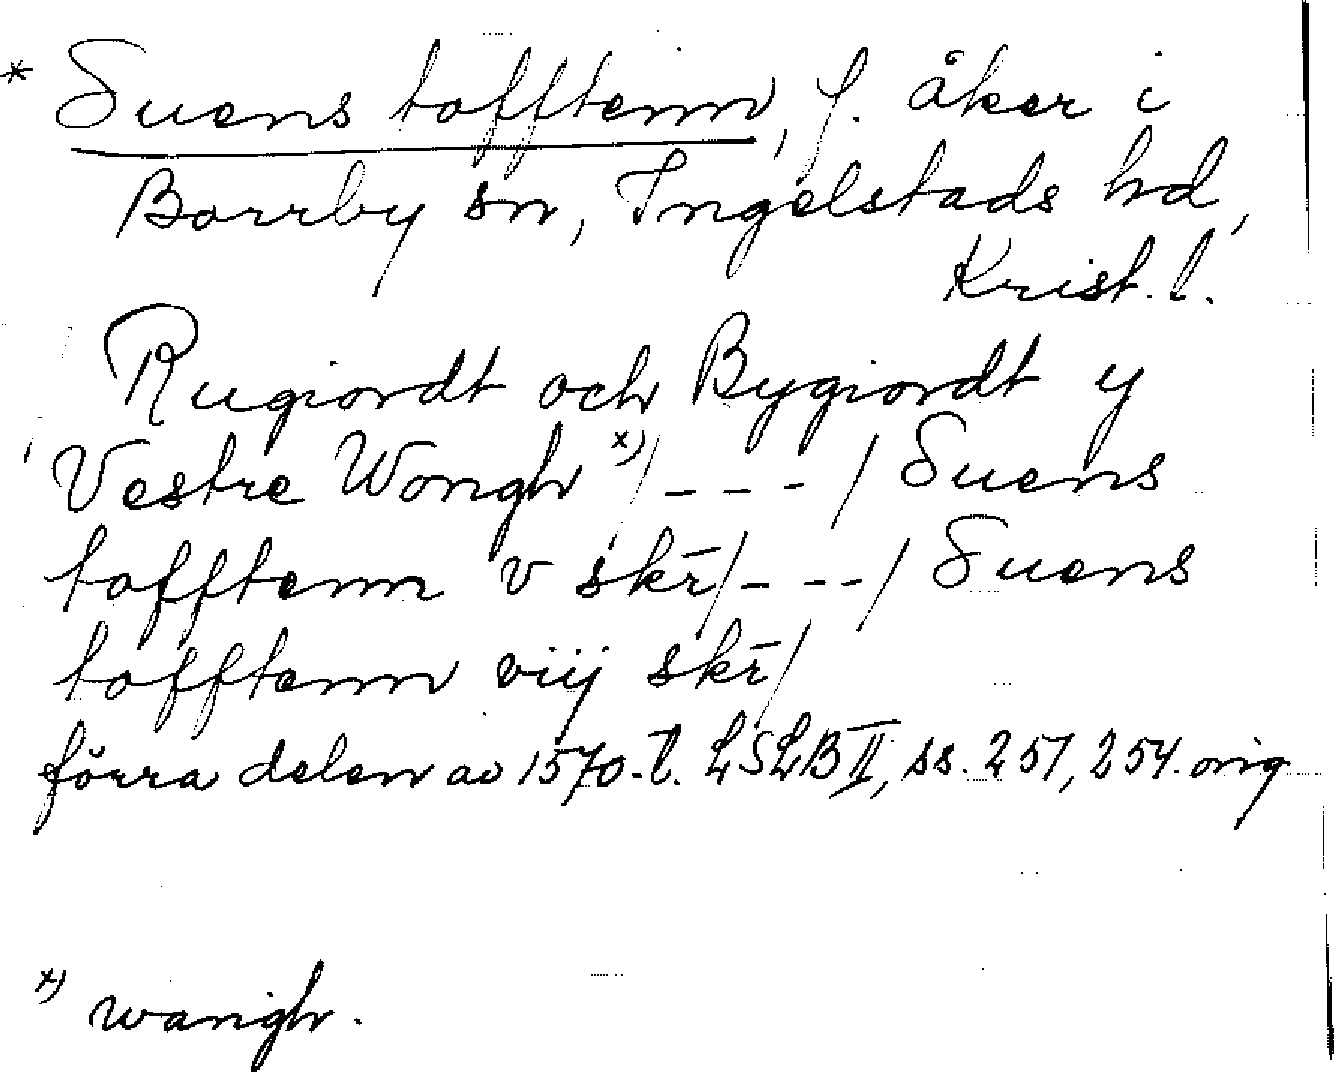 * Suens tofftenn, f. åker i
Borrby sn, Ingelstads hd,
Krist. l.
Rugiordt och Bygiordt y
Vestre Wongh x) / - - - / Suens
tofftenn v skr̄ / - - - / Suens
tofftenn viij skr̄ /
förra delen av 1570-t. LSLB II, ss. 251, 254. orig
x) wangh.